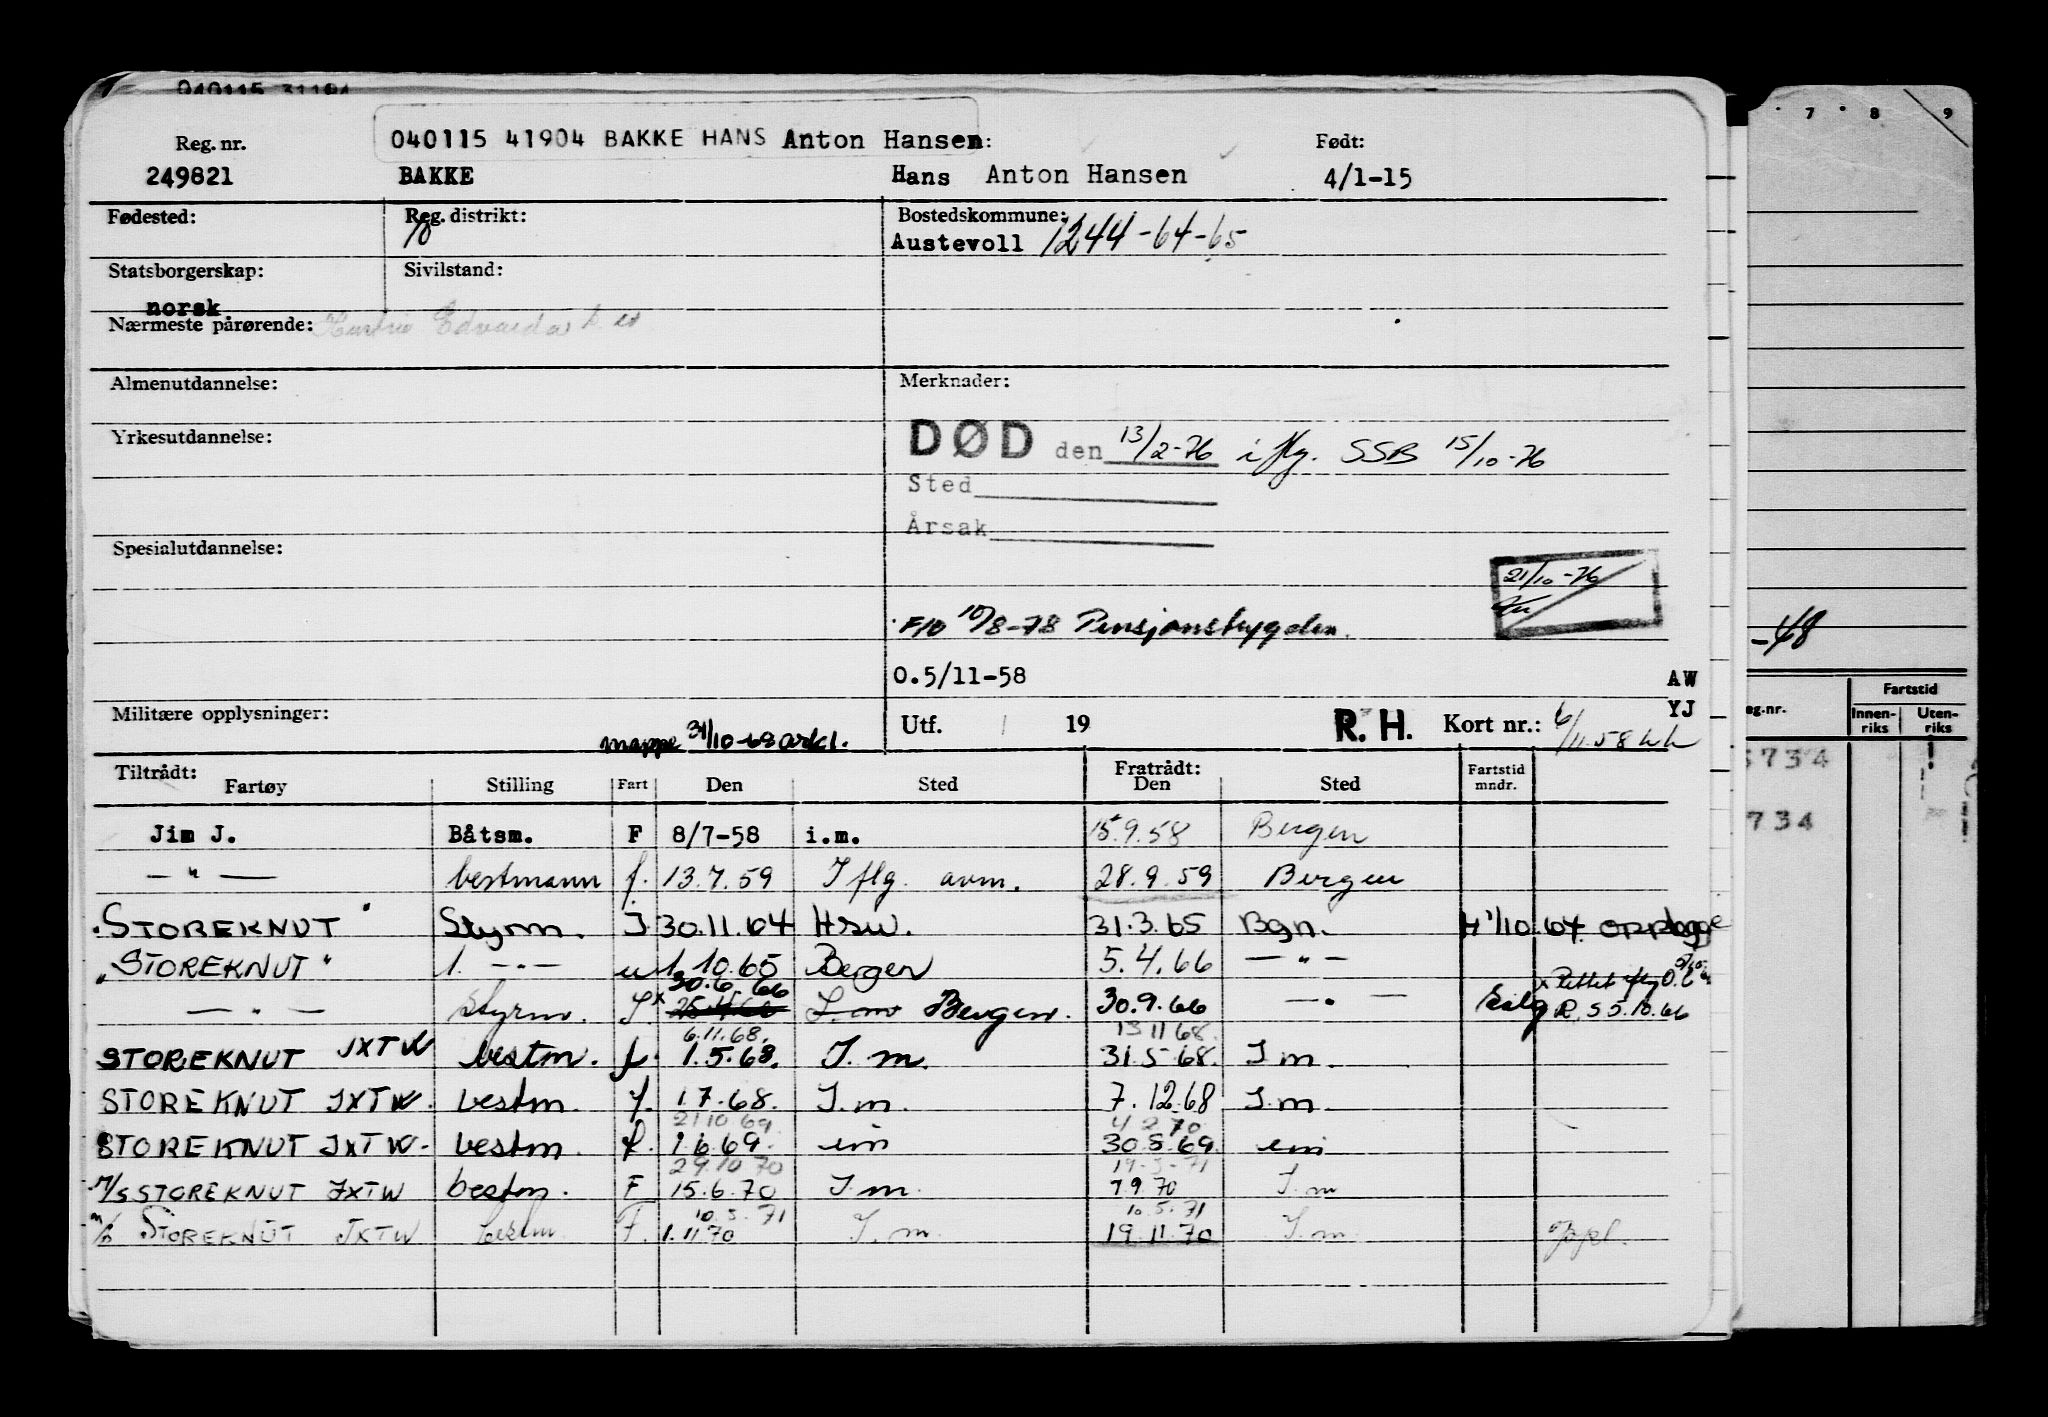 040115 31194
040115 41904 BAKKE HANS Anton Hansen:
Reg. nr. Født:
249821 BAKKE Hans Anton Hansen 4/1-15
Fødested: Reg. distrikt: Bostedskommune:
Austevoll 1244-64-65
Statsborgerskap: Sivilstand:
norsk
Nærmeste pårørende:
Almenutdannelse: Merknader:
Yrkesutdannelse:
DØD den 13/2-76 iflg. SSB 15/10-76
Sted
Årsak
Spesialutdannelse:
21/10-76
10/8-78 Pensjonstrygden.
0.5/11-58 AW
Militære opplysninger: Utf. 19 R.H. Kort nr.: YJ
mappe 31/10-68 arkl. 6/11.58
Tiltrådt: Fratrådt:
Fartøy Stilling Fart Den Sted Den Sted Fartstid mndr.
Jim J. Båtsm. F 8/7-58 i.m. 15.9.58 Bergen
— " — bestmann f. 13.7.59 Iflg. avm. 28.9.59 Bergen
"STOREKNUT" Styrm. I 30.11.64 31.3.65 Bgn. 1/10.64
"STOREKNUT" 1. —"— u 1.10.65 Bergen 5.4.66 —"—
30.6.66
— " — Styrm. Bergen. 30.9.66 — " — R.S 5.10.66
6.11.68. 13.11.68.
STOREKNUT JXTW bestm. f. 1.5.68. I.m. 31.5.68. I.m.
STOREKNUT JXTW. bestm. f. 1.7.68. I.m. 7.12.68 I.m.
21.10.69. 4.2.70.
STOREKNUT JXTW. bestm. f. 1.6.69. im 30.8.69. im
29.10.70 19.3.71
M/S STOREKNUT JXTW bestm. F 15.6.70 I.m. 7.9.70 I.m
10.5.71 10.5.71
STOREKNUT JXTW bestm F. 1.11.70 I.m. 19.11.70 I.m.
7 8 9
-48
Fartstid
eg.nr. Innen-riks Uten-riks
734
734